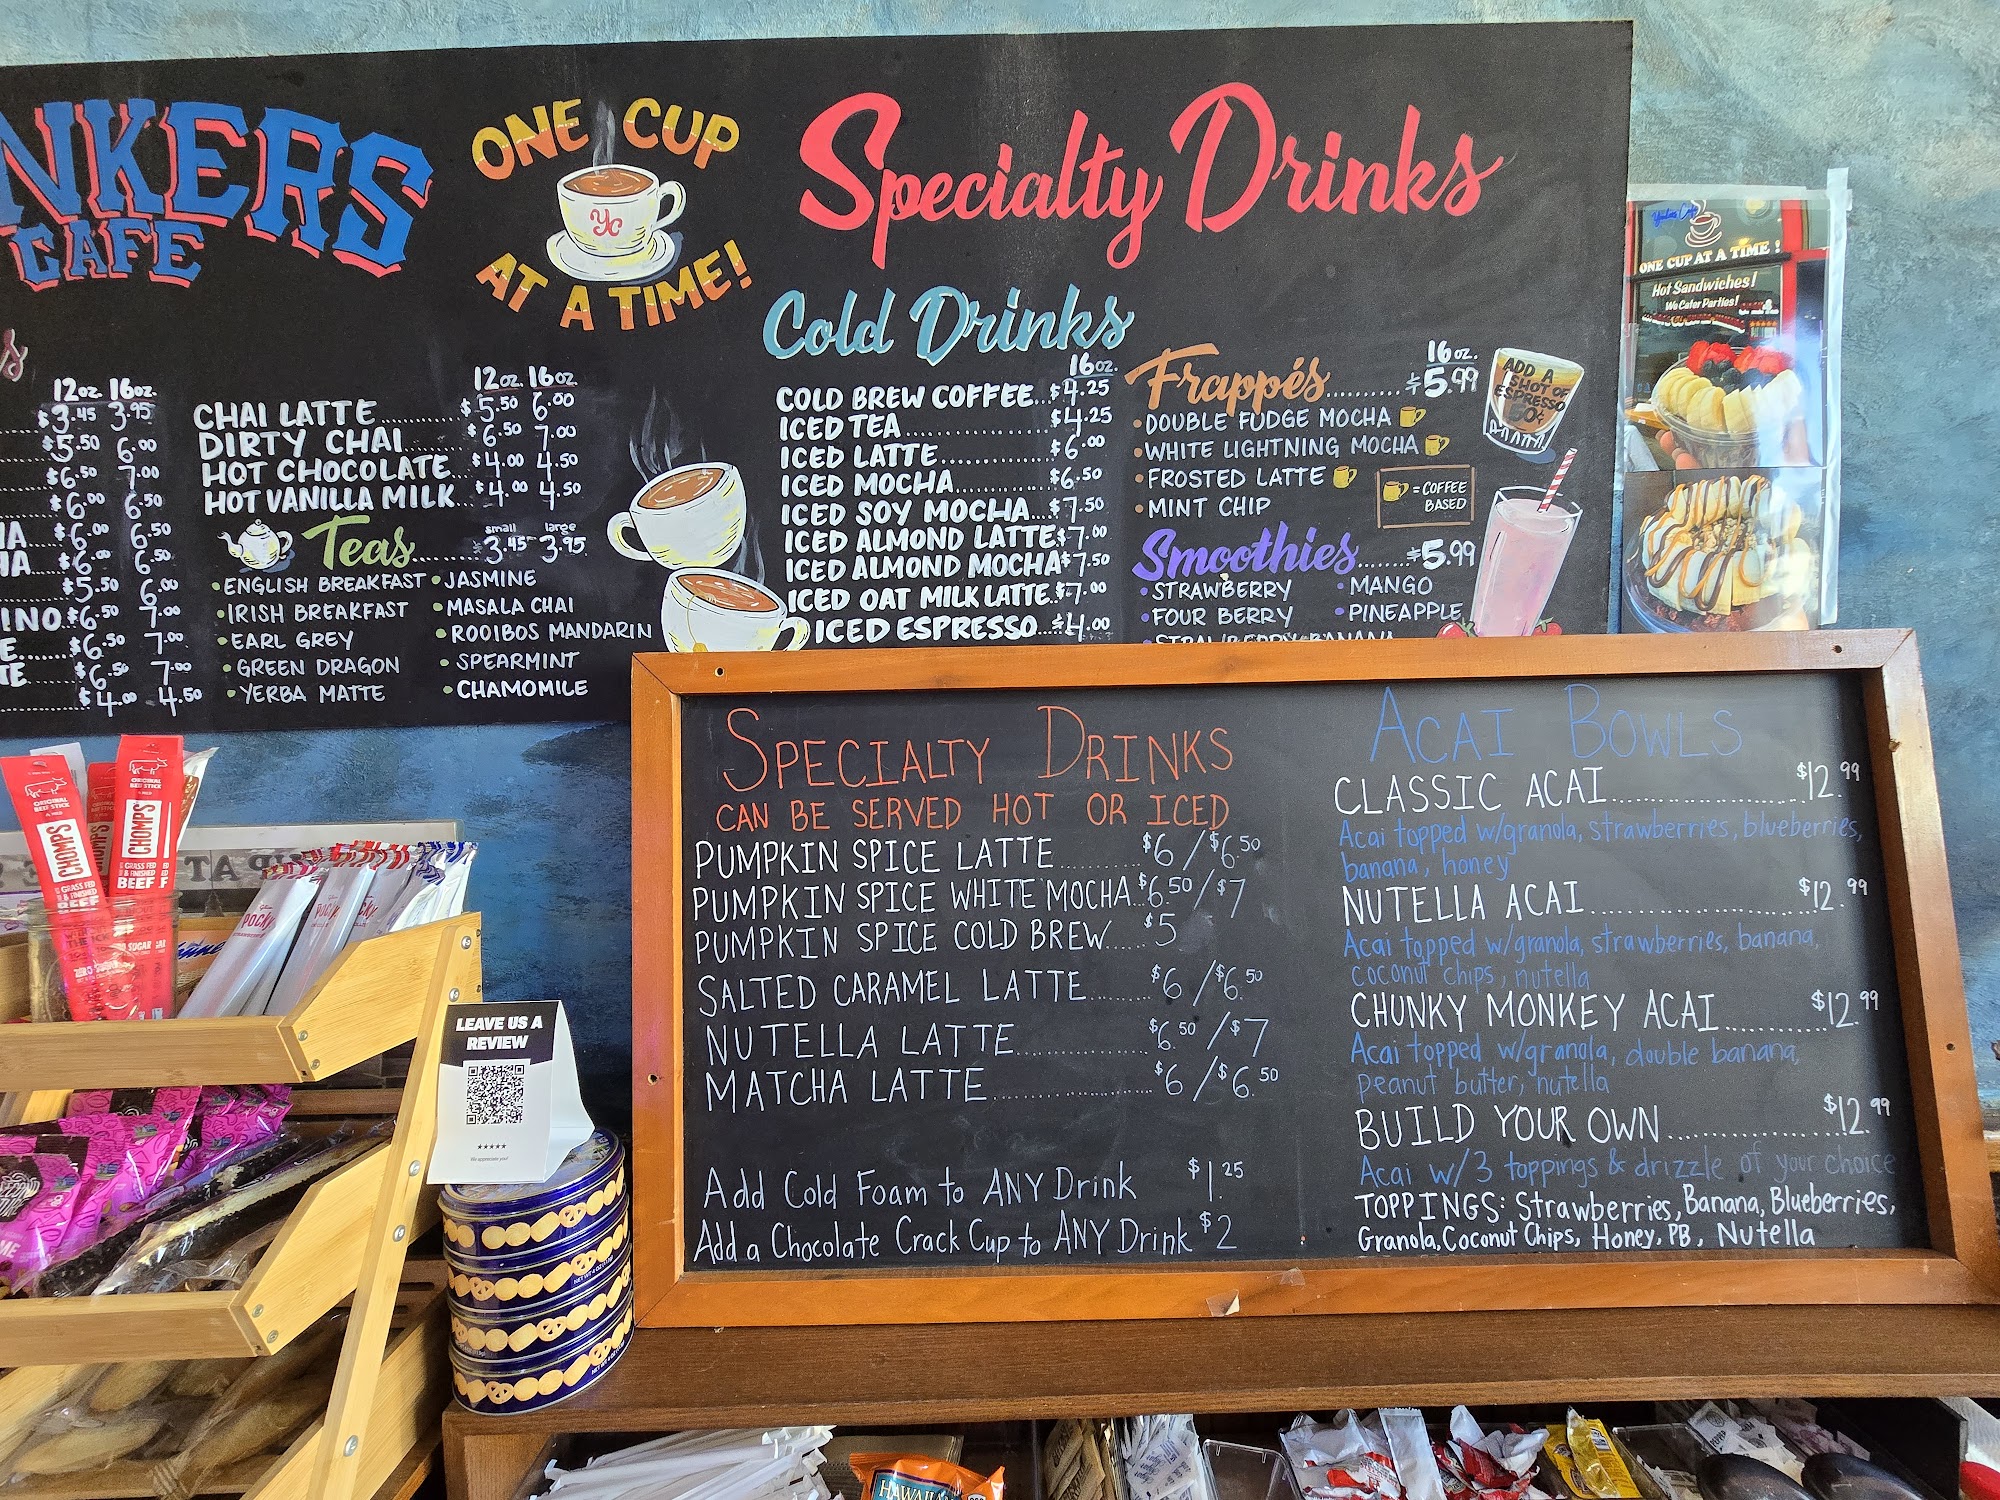 NKERS
CAFE
ONE CUP
YC
AT A TIME!
Specialty Drinks
12oz. 16oz.
$3.45 3.95
$5.50 6.00
$6.50 7.00
$6.00 6.50
$6.00 6.50
$6.00 6.50
$5.50 6.00
INO..$6.50 7.00
E......$6.50 7.00
TE......$6.50 7.00
$4.00 4.50
12oz. 16oz.
CHAI LATTE $5.50 6.00
DIRTY CHAI $6.50 7.00
HOT CHOCOLATE $4.00 4.50
HOT VANILLA MILK $4.00 4.50
small large
Teas $3.45 3.95
• ENGLISH BREAKFAST
• IRISH BREAKFAST
• EARL GREY
• GREEN DRAGON
• YERBA MATTE
• JASMINE
• MASALA CHAI
• ROOIBOS MANDARIN
• SPEARMINT
• CHAMOMILE
Cold Drinks
16oz.
COLD BREW COFFEE...$4.25
ICED TEA $4.25
ICED LATTE $6.00
ICED MOCHA $6.50
ICED SOY MOCHA...$7.50
ICED ALMOND LATTE $7.00
ICED ALMOND MOCHA $7.50
ICED OAT MILK LATTE..$7.00
ICED ESPRESSO...$4.00
16oz.
Frappés $5.99
• DOUBLE FUDGE MOCHA
• WHITE LIGHTNING MOCHA
• FROSTED LATTE
• MINT CHIP
= COFFEE
BASED
ADD A
SHOT OF
ESPRESSO
50¢
Smoothies $5.99
• STRAWBERRY
• FOUR BERRY
STRAWBERRY BANANA
• MANGO
• PINEAPPLE
ONE CUP AT A TIME !
Hot Sandwiches!
We Cater Parties!
SPECIALTY DRINKS
CAN BE SERVED HOT OR ICED
PUMPKIN SPICE LATTE $6/$6.50
PUMPKIN SPICE WHITE MOCHA...$6.50/$7
PUMPKIN SPICE COLD BREW $5
SALTED CARAMEL LATTE $6/$6.50
NUTELLA LATTE $6.50/$7
MATCHA LATTE $6/$6.50
Add Cold Foam to ANY Drink $1.25
Add a Chocolate Crack Cup to ANY Drink $2
ACAI BOWLS
CLASSIC ACAI $12.99
Acai topped w/granola, strawberries, blueberries,
banana, honey
NUTELLA ACAI $12.99
Acai topped w/granola, strawberries, banana,
coconut chips, nutella
CHUNKY MONKEY ACAI $12.99
Acai topped w/granola, double banana,
peanut butter, nutella
BUILD YOUR OWN $12.99
Acai w/3 toppings & drizzle of your choice
TOPPINGS: Strawberries, Banana, Blueberries,
Granola, Coconut Chips, Honey, PB, Nutella
ORIGINAL
BEEF STICK
CHOMPS
GRASS FED
& FINISHED
BEEF
ORIGINAL
BEEF STICK
CHOMPS
GRASS FED
& FINISHED
BEEF
CHOMPS
ZERO SUGAR
POCKY
LEAVE US A
REVIEW
We appreciate you!
HAWAIIAN